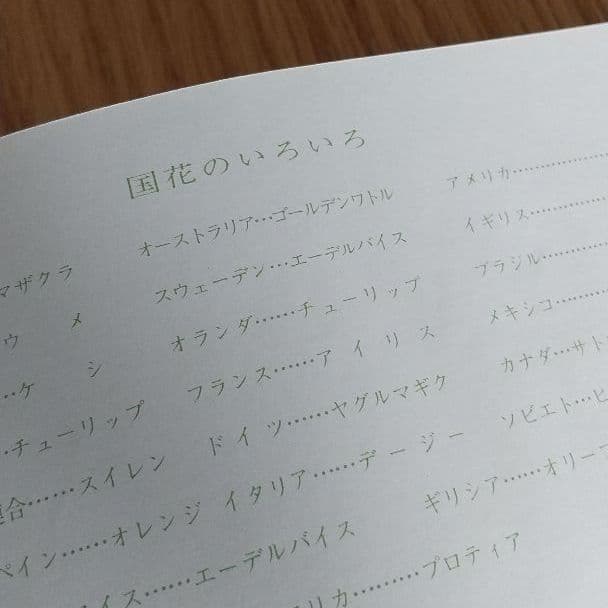 国花のいろいろ
マザクラ オーストラリア…ゴールデンワトル アメリカ………
ウメ スウェーデン…エーデルバイス イギリス………
…ケシ オランダ……チューリップ ブラジル………
…チューリップ フランス……アイリス メキシコ………
連合……スイレン ドイツ……ヤグルマギク カナダ…サト
ペイン……オレンジ イタリア……デージー ソビエト…ヒ
イス……エーデルバイス ギリシア……オリーブ
リカ………プロティア